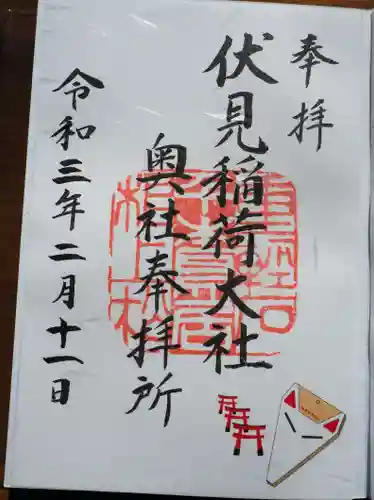 奉拝
伏見稲荷大社
奥社奉拝所
令和三年二月十一日